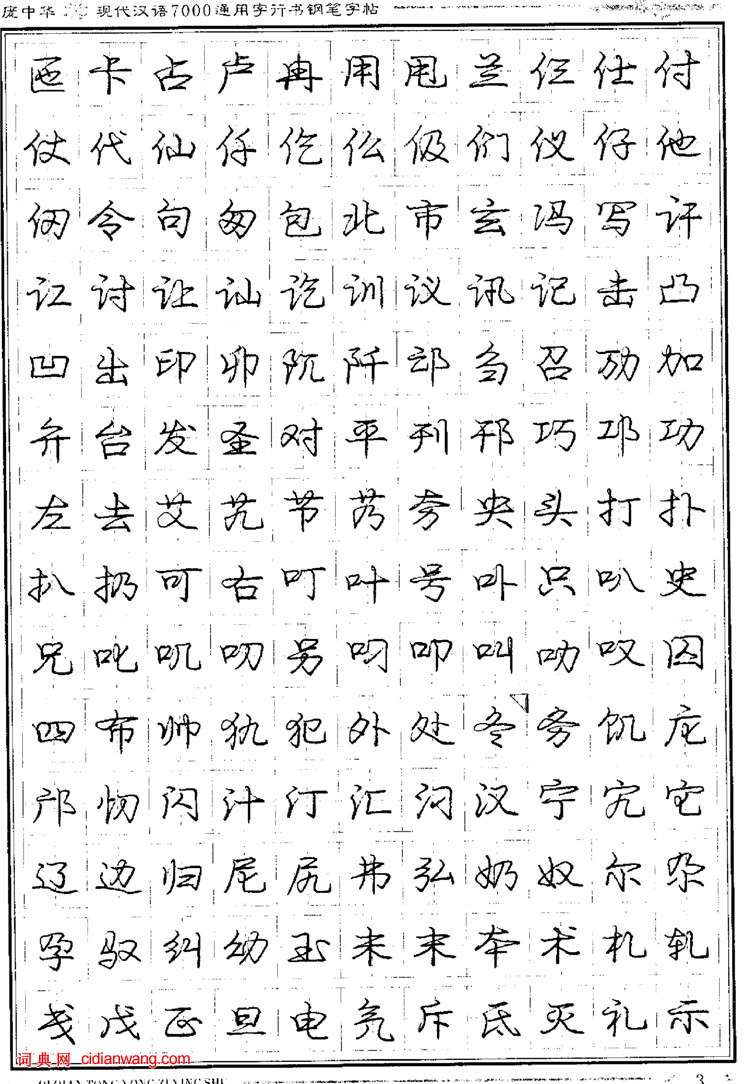 庞中华 现代汉语7000通用字行书钢笔字帖
叵卡占卢冉用甩兰仨仕付
仗代仙仟仡仫伋们仪仔他
仞令句匆包北市玄冯写讦
讧讨让讪讫训议讯记击凸
凹出印卯阢阡邙刍召劢加
弁台发圣对平刊邗巧邛功
左去艾艽节艿夯央头打扑
扒扔可右叮叶号卟只叭史
兄叱叽叨另叼叩叫叻叹囚
四布帅犰犯外处冬务饥庀
邝忉闪汁汀汇汈汉宁宄它
辽边归尼尻弗弘奶奴尔尕
孕驭纠幼玉未末本术札轧
戋戊正旦电氕斥氐灭礼示
词典网_cidianwang.com
3